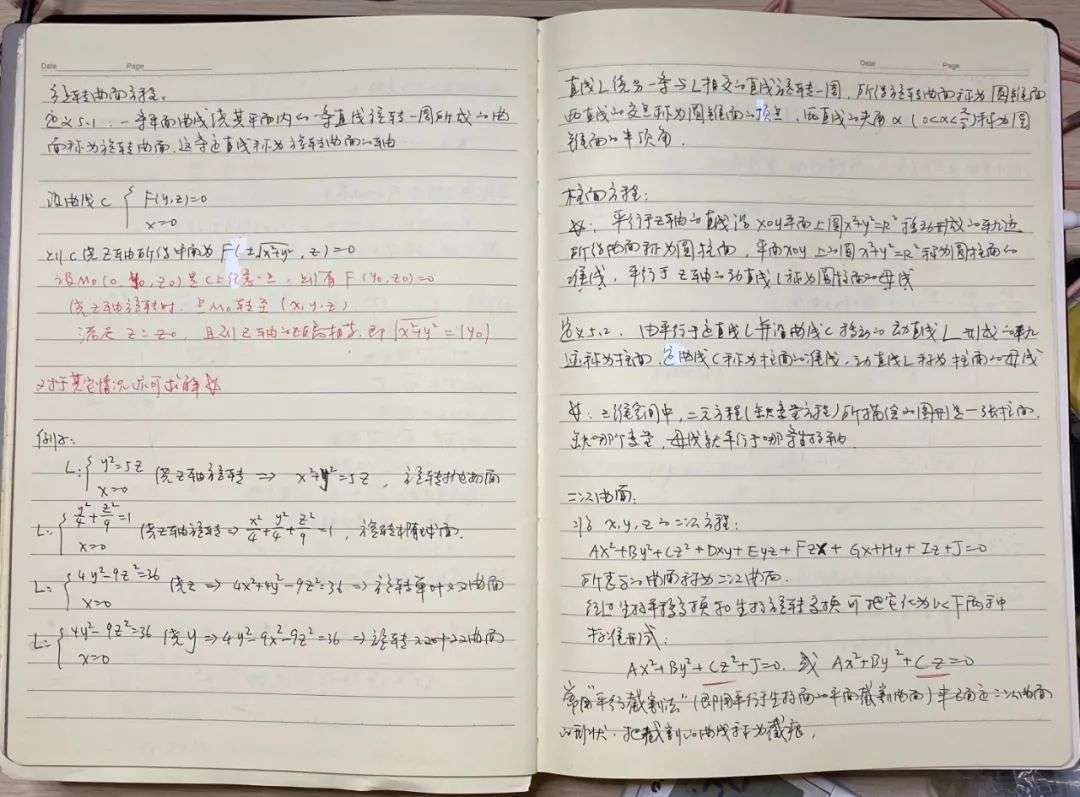 Date Page
旋转曲面方程。
定义5.1. 一条平面曲线绕其平面内的一条直线旋转一周所成的曲
面称为旋转曲面,这条定直线称为旋转曲面的轴
设曲线C { F(y,z)=0
x=0
则C绕z轴所得曲面为 F(±√x²+y², z)=0
设M₀(0, y₀, z₀)是C上任意一点,则有 F(y₀,z₀)=0
绕z轴旋转时,点M₀转至(x,y,z)
满足 z=z₀, 且到z轴的距离相等,即√x²+y²=|y₀|
对于其它情况亦可求解
例如:
L:{ y²=5z
x=0
绕z轴旋转 ⇒ x²+y²=5z, 旋转抛物面
L:{ y²/4+z²/9=1
x=0
绕z轴旋转⇒ x²/4+y²/4+z²/9=1, 旋转椭球面.
L:{ 4y²-9z²=36
x=0
绕z ⇒ 4x²+4y²-9z²=36 ⇒ 旋转单叶双曲面
L:{ 4y²-9z²=36
x=0
绕y ⇒ 4y²-9x²-9z²=36 ⇒ 旋转双叶双曲面
Date Page
直线L绕另一条与L相交的直线旋转一周,所得旋转曲面称为圆锥面
两直线的交点称为圆锥面的顶点,两直线的夹角α(0<α<π/2)称为圆
锥面的半顶角.
柱面方程:
平行于z轴的直线沿xoy平面上圆x²+y²=R²移动形成的轨迹
所得曲面称为圆柱面,平面xoy上的圆x²+y²=R²称为圆柱面的
准线,平行于z轴的动直线L称为圆柱面的母线
定义5.2. 由平行于定直线L并沿曲线C移动的动直线L形成的轨
迹称为柱面,定曲线C称为柱面的准线,动直线L称为柱面的母线
三维空间中,二元方程(缺变量方程)所描绘的图形是一张柱面,
缺哪个变量,母线就平行于哪条坐标轴
二次曲面.
x,y,z的二次方程:
Ax²+By²+Cz²+Dxy+Eyz+Fzx+Gx+Hy+Iz+J=0
所表示的曲面称为二次曲面.
经过坐标平移变换和坐标旋转变换可把它化为以下两种
标准形式:
Ax²+By²+Cz²+J=0. 或 Ax²+By²+Cz=0
常用"平行截割法"(即用平行于坐标面的平面截割曲面)来确定二次曲面
的形状,把截割的曲线称为截痕.